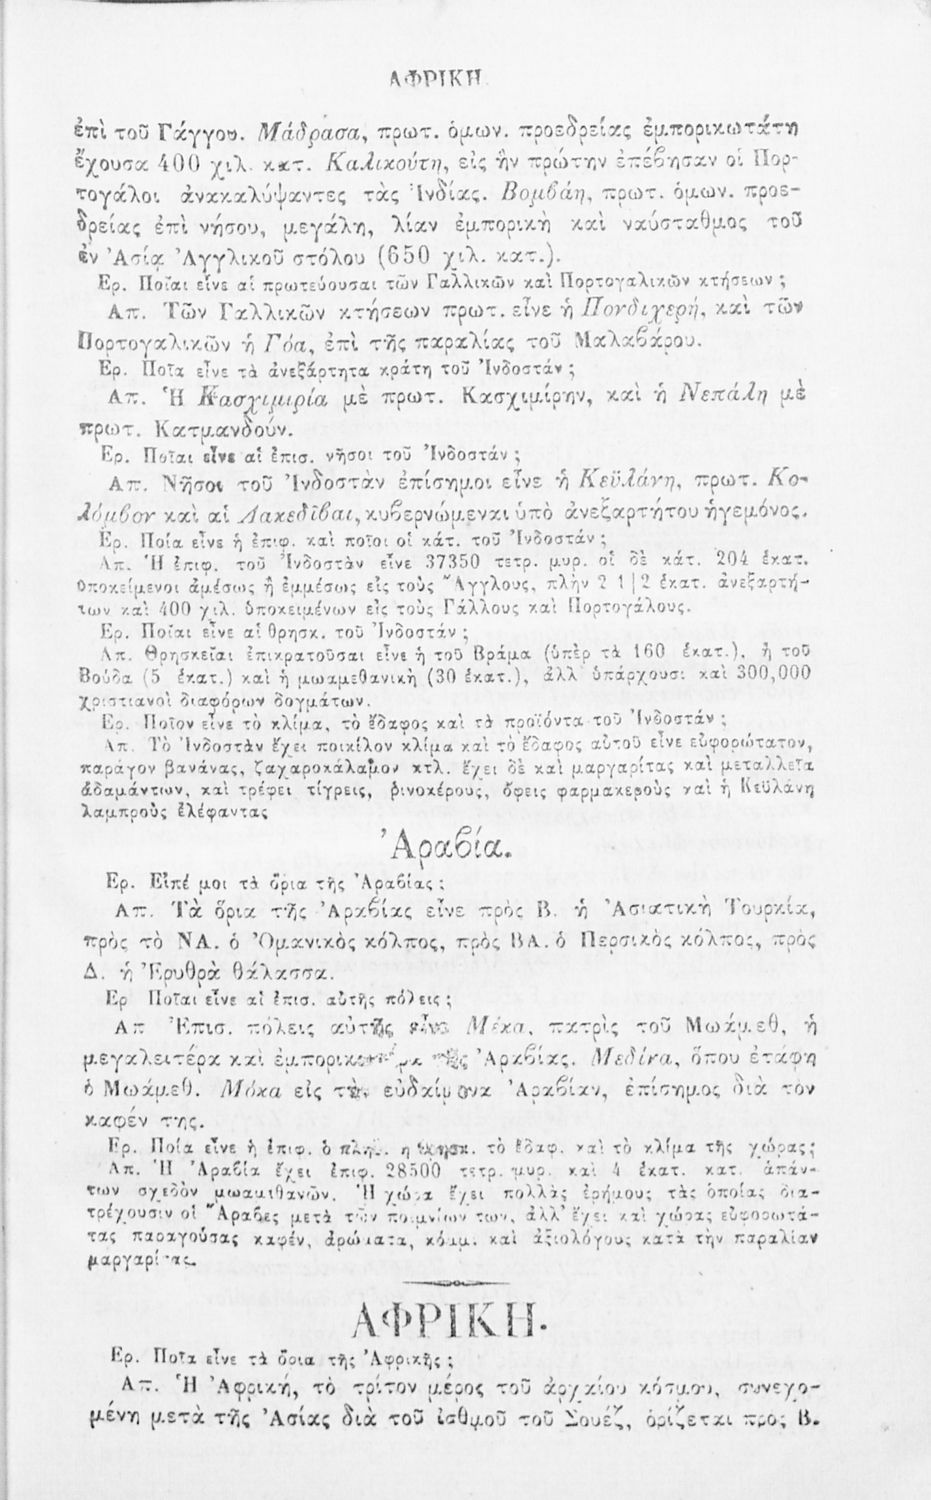 ΑΦΡΙΚΗ
ἐπὶ τοῦ Γάγγου. Μάδρασα, πρωτ. ὁμων. προεδρείας ἐμπορικωτάτη
ἔχουσα 400 χιλ. κατ. Καλικούτη, εἰς ἣν πρώτην ἐπέβησαν οἱ Πορ-
τογάλοι ἀνακαλύψαντες τὰς Ἰνδίας. Βομβάη, πρωτ. ὁμων. προε-
δρείας ἐπὶ νήσου, μεγάλη, λίαν ἐμπορικὴ καὶ ναύσταθμος τοῦ
ἐν Ἀσίᾳ Ἀγγλικοῦ στόλου (650 χιλ. κατ.).
Ερ. Ποῖαι εἶνε αἱ πρωτεύουσαι τῶν Γαλλικῶν καὶ Πορτογαλικῶν κτήσεων ;
Απ. Τῶν Γαλλικῶν κτήσεων πρωτ. εἶνε ἡ Πονδιχερή, καὶ τῶν
Πορτογαλικῶν ἡ Γόα, ἐπὶ τῆς παραλίας τοῦ Μαλαβάρου.
Ερ. Ποῖα εἶνε τὰ ἀνεξάρτητα κράτη τοῦ Ἰνδοστάν ;
Απ. Ἡ Κασχιμιρία μὲ πρωτ. Κασχιμίρην, καὶ ἡ Νεπάλη μὲ
πρωτ. Κατμανδούν.
Ερ. Ποῖαι εἶνε αἱ ἐπισ. νῆσοι τοῦ Ἰνδοστάν ;
Απ. Νῆσοι τοῦ Ἰνδοστὰν ἐπίσημοι εἶνε ἡ Κεϋλάνη, πρωτ. Κο-
λόμβον καὶ αἱ Λακεδῖβαι, κυβερνώμεναι ὑπὸ ἀνεξαρτήτου ἡγεμόνος.
Ερ. Ποία εἶνε ἡ ἐπιφ. καὶ ποῖοι οἱ κάτ. τοῦ Ἰνδοστάν ;
Απ. Ἡ ἐπιφ. τοῦ Ἰνδοστὰν εἶνε 37350 τετρ. μυρ. οἱ δὲ κάτ. 204 ἑκατ.
ὑποκείμενοι ἀμέσως ἢ ἐμμέσως εἰς τοὺς Ἄγγλους, πλὴν 2 1|2 ἑκατ. ἀνεξαρτή-
των καὶ 400 χιλ. ὑποκειμένων εἰς τοὺς Γάλλους καὶ Πορτογάλους.
Ερ. Ποῖαι εἶνε αἱ θρησκ. τοῦ Ἰνδοστάν ;
Απ. Θρησκεῖαι ἐπικρατοῦσαι εἶνε ἡ τοῦ Βράμα (ὑπὲρ τὰ 160 ἑκατ.), ἡ τοῦ
Βούδα (5 ἑκατ.) καὶ ἡ μωαμεθανικὴ (30 ἑκατ.), ἀλλ' ὑπάρχουσι καὶ 300,000
χριστιανοὶ διαφόρων δογμάτων.
Ερ. Ποῖον εἶνε τὸ κλίμα, τὸ ἔδαφος καὶ τὰ προϊόντα τοῦ Ἰνδοστάν ;
Απ. Τὸ Ἰνδοστὰν ἔχει ποικίλον κλίμα καὶ τὸ ἔδαφος αὐτοῦ εἶνε εὐφορώτατον,
παράγον βανάνας, ζαχαροκάλαμον κτλ. ἔχει δὲ καὶ μαργαρίτας καὶ μεταλλεῖα
ἀδαμάντων, καὶ τρέφει τίγρεις, ῥινοκέρους, ὄφεις φαρμακεροὺς καὶ ἡ Κεϋλάνη
λαμπροὺς ἐλέφαντας
Ἀραβία.
Ερ. Εἰπέ μοι τὰ ὅρια τῆς Ἀραβίας ;
Απ. Τὰ ὅρια τῆς Ἀραβίας εἶνε πρὸς Β. ἡ Ἀσιατικὴ Τουρκία,
πρὸς τὸ ΝΑ. ὁ Ὀμανικὸς κόλπος, πρὸς ΒΑ. ὁ Περσικὸς κόλπος, πρὸς
Δ. ἡ Ἐρυθρὰ θάλασσα.
Ερ Ποῖαι εἶνε αἱ ἐπισ. αὐτῆς πόλεις ;
Απ Ἐπισ. πόλεις αὐτῆς εἶνε Μέκα, πατρὶς τοῦ Μωάμεθ, ἡ
μεγαλειτέρα καὶ τῆς Ἀραβίας. Μεδίνα, ὅπου ἐτάφη
ὁ Μωάμεθ. Μόκα εἰς τὴν εὐδαίμονα Ἀραβίαν, ἐπίσημος διὰ τὸν
καφέν της.
Ερ. Ποία εἶνε ἡ ἐπιφ. ὁ πληθ. ἡ θρησκ. τὸ ἔδαφ. καὶ τὸ κλίμα τῆς χώρας;
Απ. Ἡ Ἀραβία ἔχει ἐπιφ. 28500 τετρ. μυρ. καὶ 4 ἑκατ. κατ. ἁπάν-
των σχεδὸν μωαμεθανῶν. Ἡ χώρα ἔχει πολλὰς ἐρήμους τὰς ὁποίας δια-
τρέχουσιν οἱ Ἄραβες μετὰ τῶν ποιμνίων των, ἀλλ' ἔχει καὶ χώρας εὐφορωτά-
τας παραγούσας καφέν, ἀρώματα, κόμμ. καὶ ἀξιολόγους κατὰ τὴν παραλίαν
μαργαρίτας.
ΑΦΡΙΚΗ.
Ερ. Ποῖα εἶνε τὰ ὅρια τῆς Ἀφρικῆς ;
Απ. Ἡ Ἀφρική, τὸ τρίτον μέρος τοῦ ἀρχαίου κόσμου, συνεχο-
μένη μετὰ τῆς Ἀσίας διὰ τοῦ ἰσθμοῦ τοῦ Σουέζ, ὁρίζεται πρὸς Β.